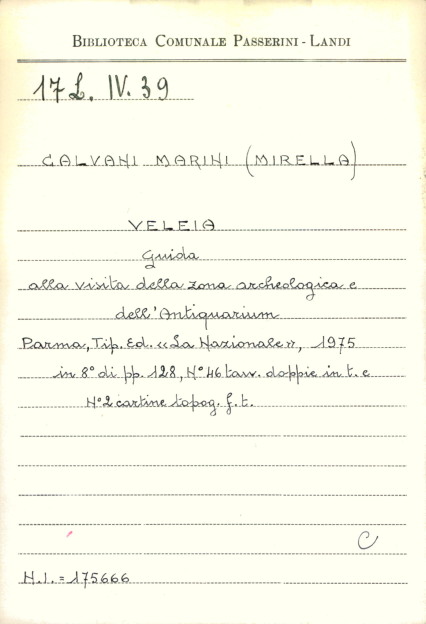 BIBLIOTECA COMUNALE PASSERINI - LANDI
17 L. IV. 39
CALVANI MARINI (MIRELLA)
VELEIA
Guida
alla visita della zona archeologica e
dell'Antiquarium
Parma, Tip. Ed. «La Nazionale», 1975
in 8° di pp. 128, N° 46 tav. doppie in t. e
N° 2 cartine topog. f. t.
C
N.I. = 175666